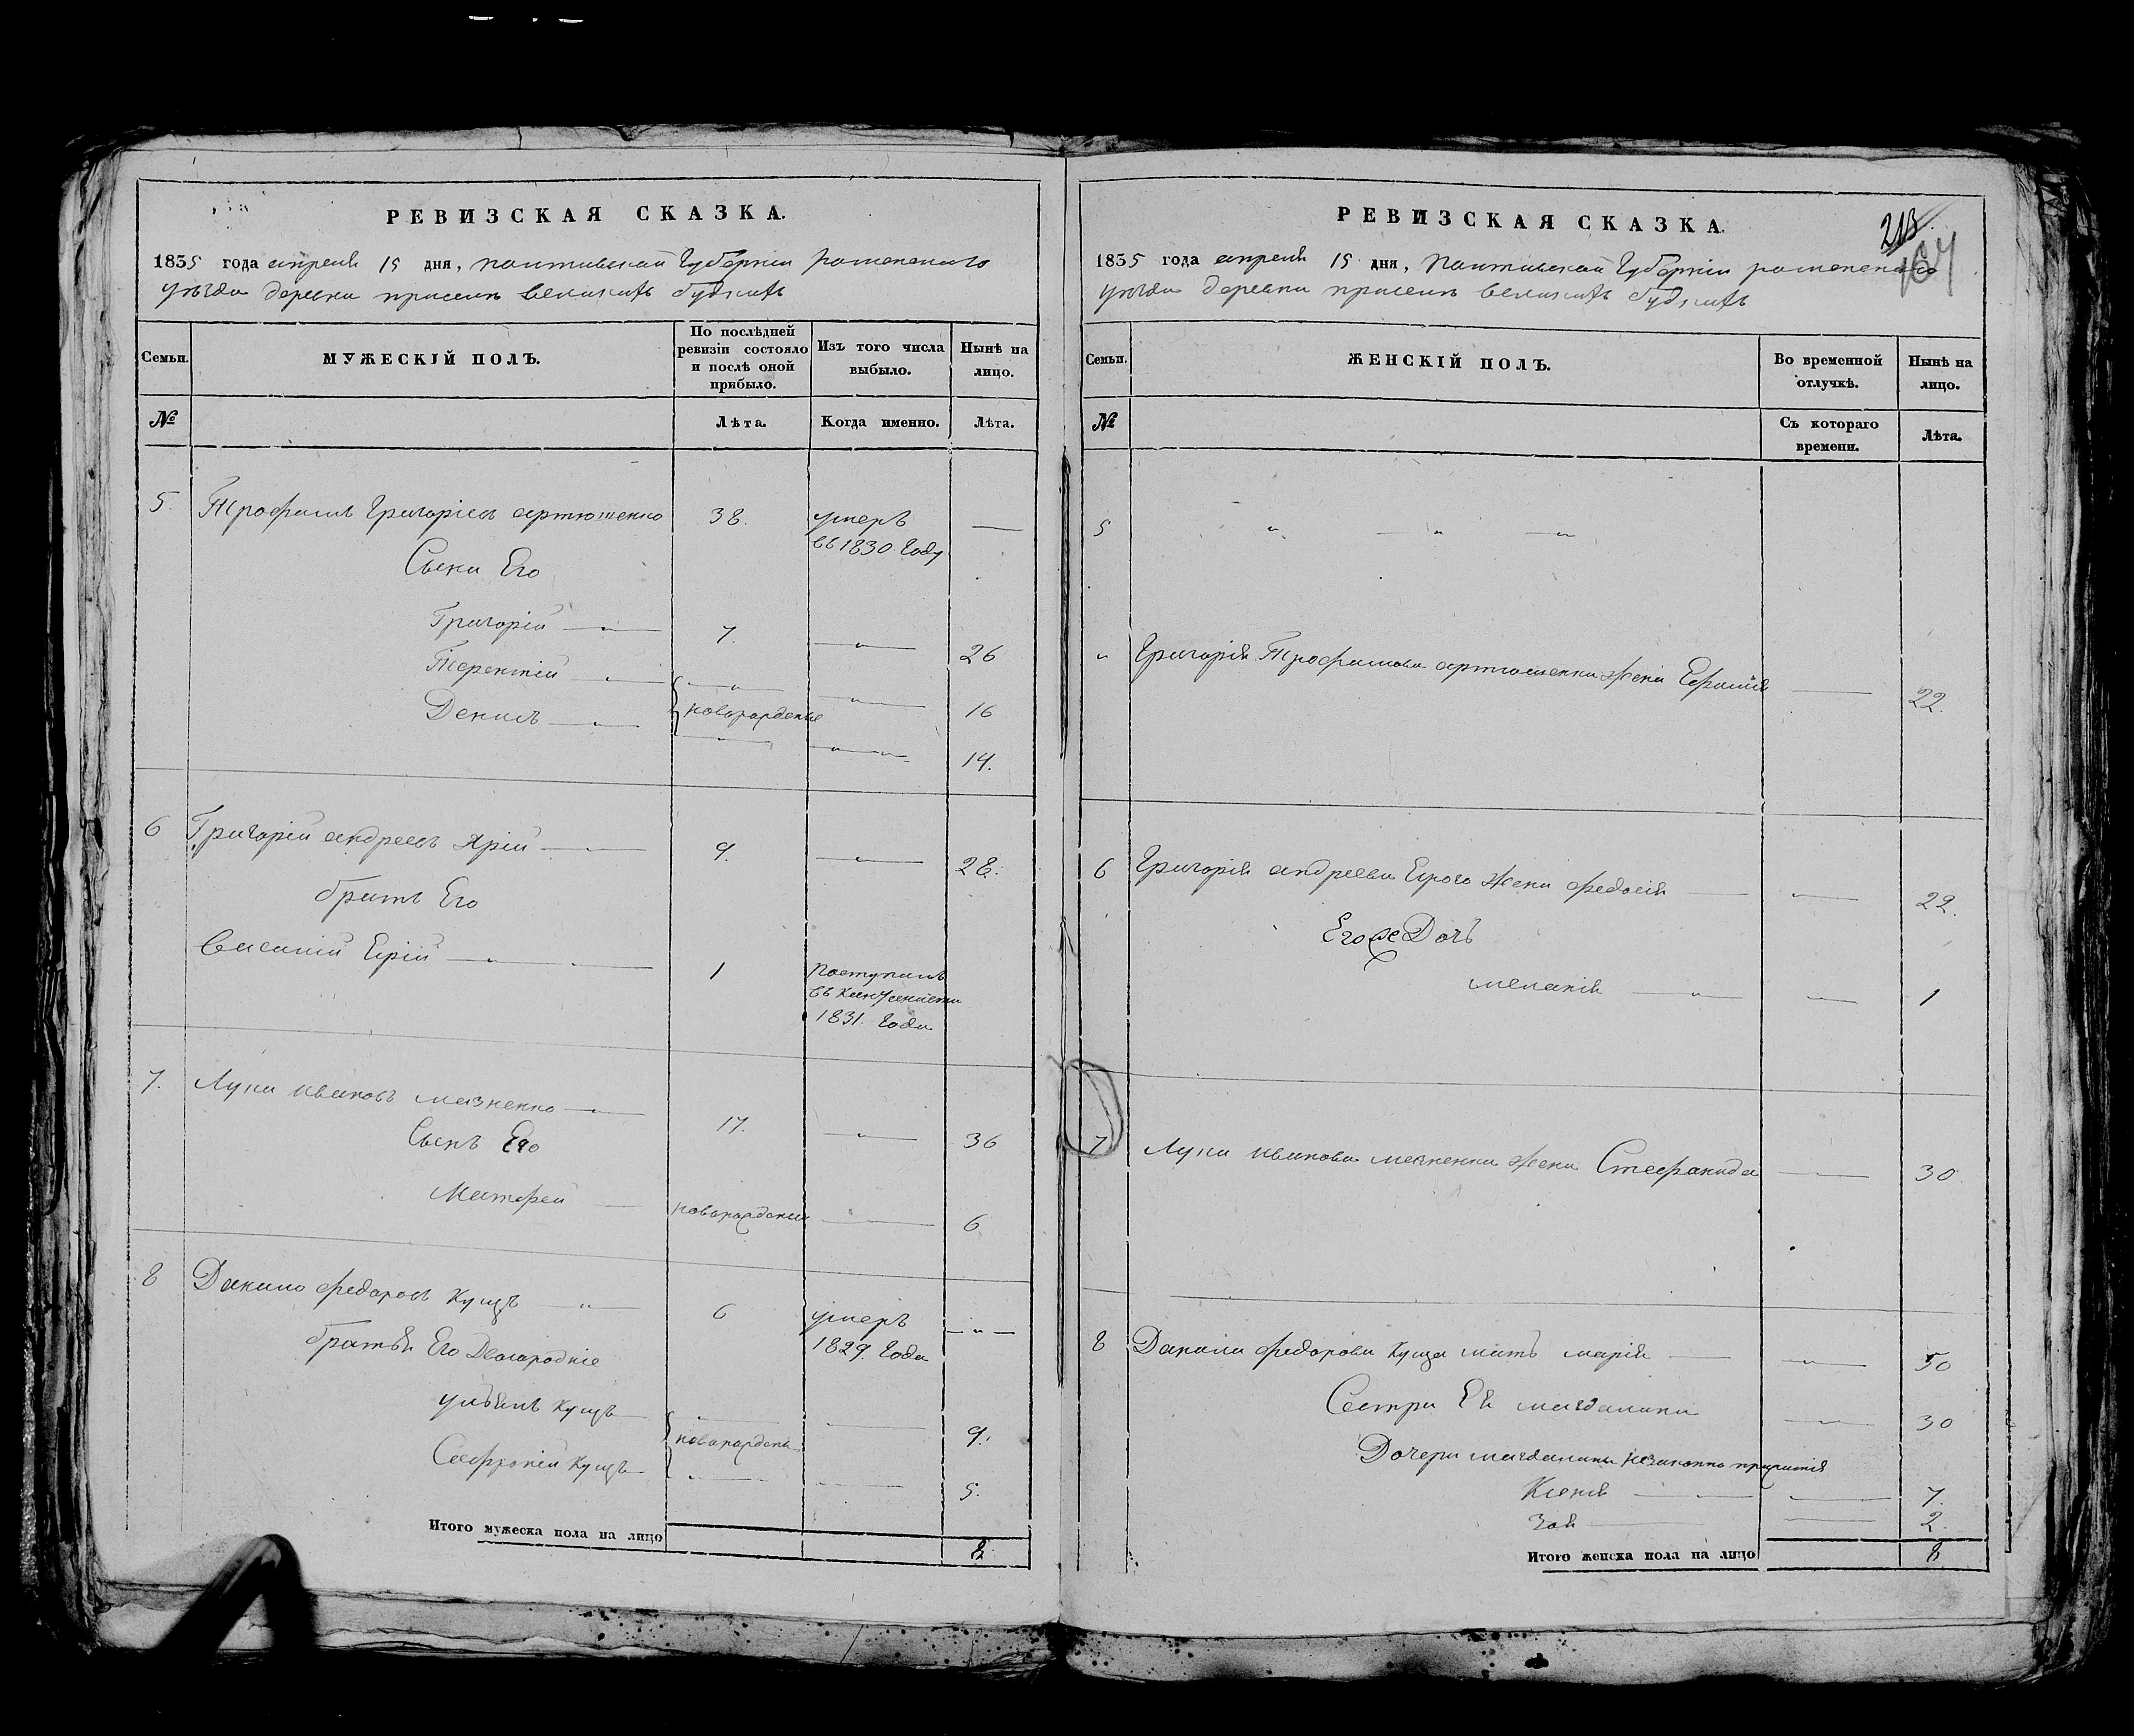 РЕВИЗСКАЯ СКАЗКА.
1835 года апреля 15 дня, полтавской Губернии роменского
уезда деревни присеик великихъ будокъ
Семьи.
МУЖЕСКІЙ ПОЛЪ.
По послѣдней ревизіи состояло и послѣ оной прибыло.
Изъ того числа выбыло.
Нынѣ на лицо.
№
Лѣта.
Когда именно.
Лѣта.
5. Трофимъ Григоріевъ артюшенко 38. умеръ —
въ 1830. Году
Сыни Его
Григорій 7. 26
Терентій 16
Денисъ новорожденые 14.
6 Григорій андреевъ Ярій 9. 28.
братъ Его
Василій Ерій 1 Поступилъ
въ
1831. Года
7. Лука ивановъ мазненко 17. 36
Сынъ Его
Матфей новорожденый 6
8 Данило федоровъ Кущъ 6 умеръ
1829. Года
братья Его Двоюродніе
улянъ Кущъ 9.
новорождены
Сафроній Кущъ 5.
Итого мужеска пола на лицо 8
РЕВИЗСКАЯ СКАЗКА.
213.
1835 года апреля 15 дня, Полтавской Губерніи роменского
уезда деревни присеик великихъ будокъ
Семьи.
ЖЕНСКІЙ ПОЛЪ.
Во временной отлучкѣ.
Нынѣ на лицо.
№
Съ котораго времени.
Лѣта.
5
Григорія Трофимова артюшенка жена Ефимія 22.
6 Григорія андреева Ерого жена федосія 22.
Его же Дочь
меланія 1
7 Луки иванова мазненка жена Стефанида 30
8 Данила федорова Куща мать марія 50
Сестра Ея магдалина 30
Дочери магдалини незаконно прижитія
Ксенія 7.
Зоя 2.
Итого женска пола на лицо 8